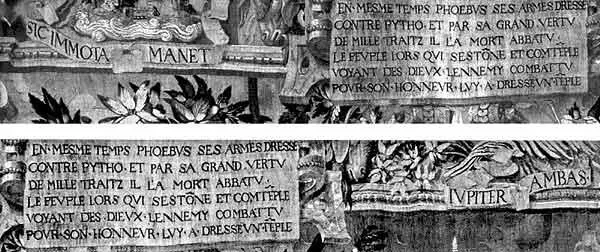 SIC IMMOTA MANET
EN·MESME TEMPS PHOEBVS SES ARMES DRESSE
CONTRE PYTHO·ET PAR SA GRAND VERTV
DE MILLE TRAITZ IL L'A MORT ABBATV
LE PEVPLE LORS QVI SESTŌNE ET COMTĒPLE
VOYANT DES·DIEVX LENNEMY COMBATTV
POVR·SON·HONNEVR·LVY·A·DRESSE VN TĒPLE
EN·MESME·TEMPS PHOEBVS SES ARMES DRESSE
CONTRE PYTHO·ET PAR SA GRAND VERTV
DE MILLE TRAITZ IL L'A MORT ABBATV
LE PEVPLE LORS QVI SESTŌNE ET COMTĒPLE
VOYANT DES·DIEVX LENNEMY COMBATTV
POVR·SON·HONNEVR·LVY·A·DRESSE VN TĒPLE
IVPITER AMBAS